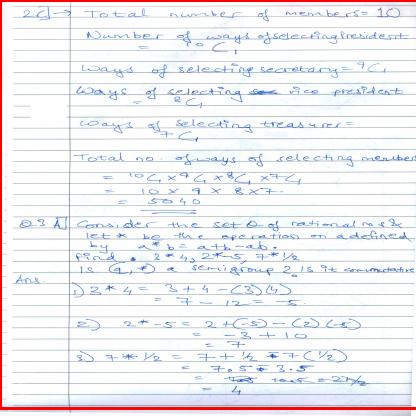 2C] → Total number of members = 10
Number of ways of selecting President
= ¹⁰C₁
Ways of selecting secretary = ⁹C₁
Ways of selecting vice president
= ⁸C₁
Ways of selecting treasurer =
⁷C₁
Total no. of ways of selecting members
= ¹⁰C₁ × ⁹C₁ × ⁸C₁ × ⁷C₁
= 10 × 9 × 8 × 7.
= 5040
Q.3 A] Consider the set Q of rational no.s &
let * be the operation on Q defined
by a*b = a+b-ab.
Find, 3*4, 2*-5, 7*1/2
Is (Q, *) a semigroup? Is it commutative
Ans.
1) 3*4 = 3+4-(3)(4)
= 7-12 = -5.
2) 2*-5 = 2+(-5)-(2)(-5)
= -3+10
= 7
3) 7*1/2 = 7+1/2-7(1/2)
= 7.5-3.5
= 4